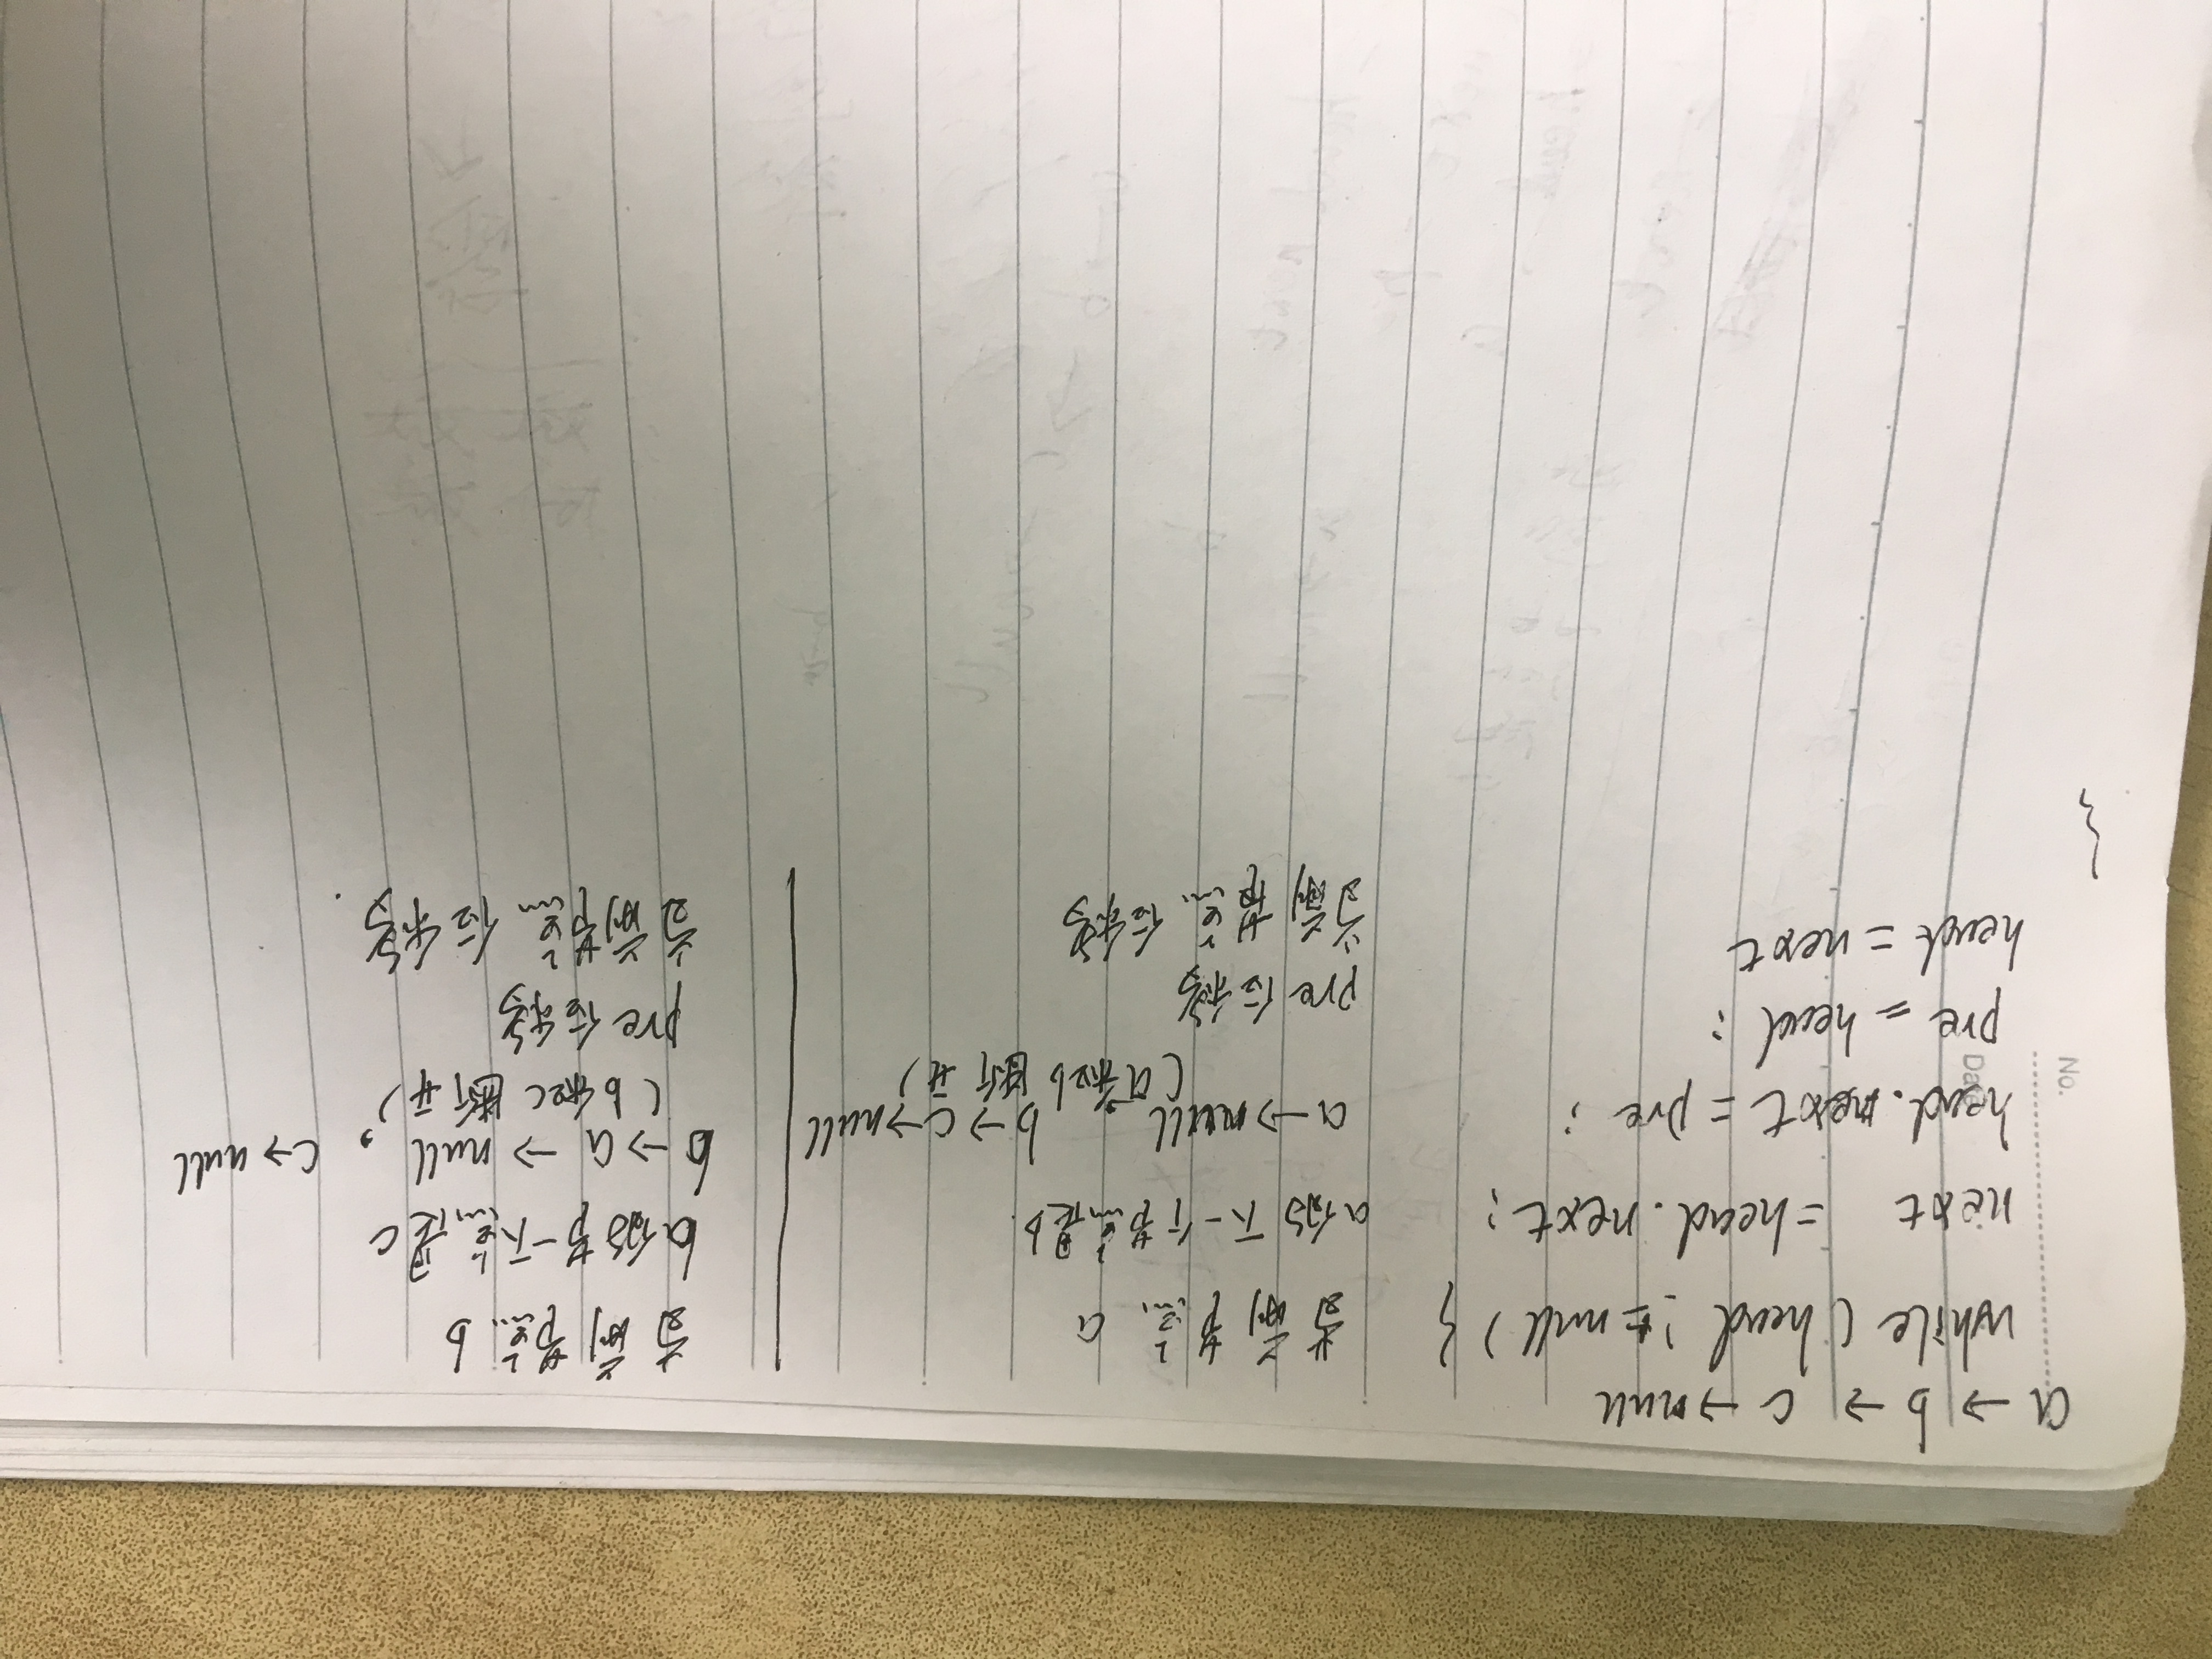 a → b → c → null
while ( head != null ) {
next = head.next ;
head.next = pre ;
pre = head ;
head = next
}
当前节点 a
a 的下一个节点是 b.
a → null , b → c → null
( a 和 b 断开 )
pre 位移
当前节点 位移
当前节点 b
b 的节下一点是 c
b → a → null , c → null
( b 和 c 断开 )
pre 位移
当前节点 位移 .
No.
Date